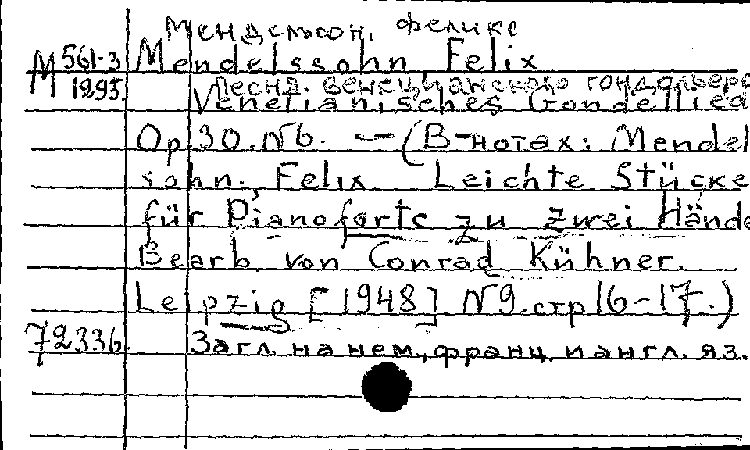 Мендельсон, Феликс
М 561-3 Mendelssohn, Felix
1295 Песнь венецианского гондольера
Venetianisches Gondellied
Op. 30. N6. — (В нотах: Mendel
sohn, Felix Leichte Stücke
für Pianoforte zu zwei Hände
Bearb. von Conrad Kühner.
Leipzig [1948] N9. стр 16-17.)
72336. Загл. на нем., франц. и англ. яз.